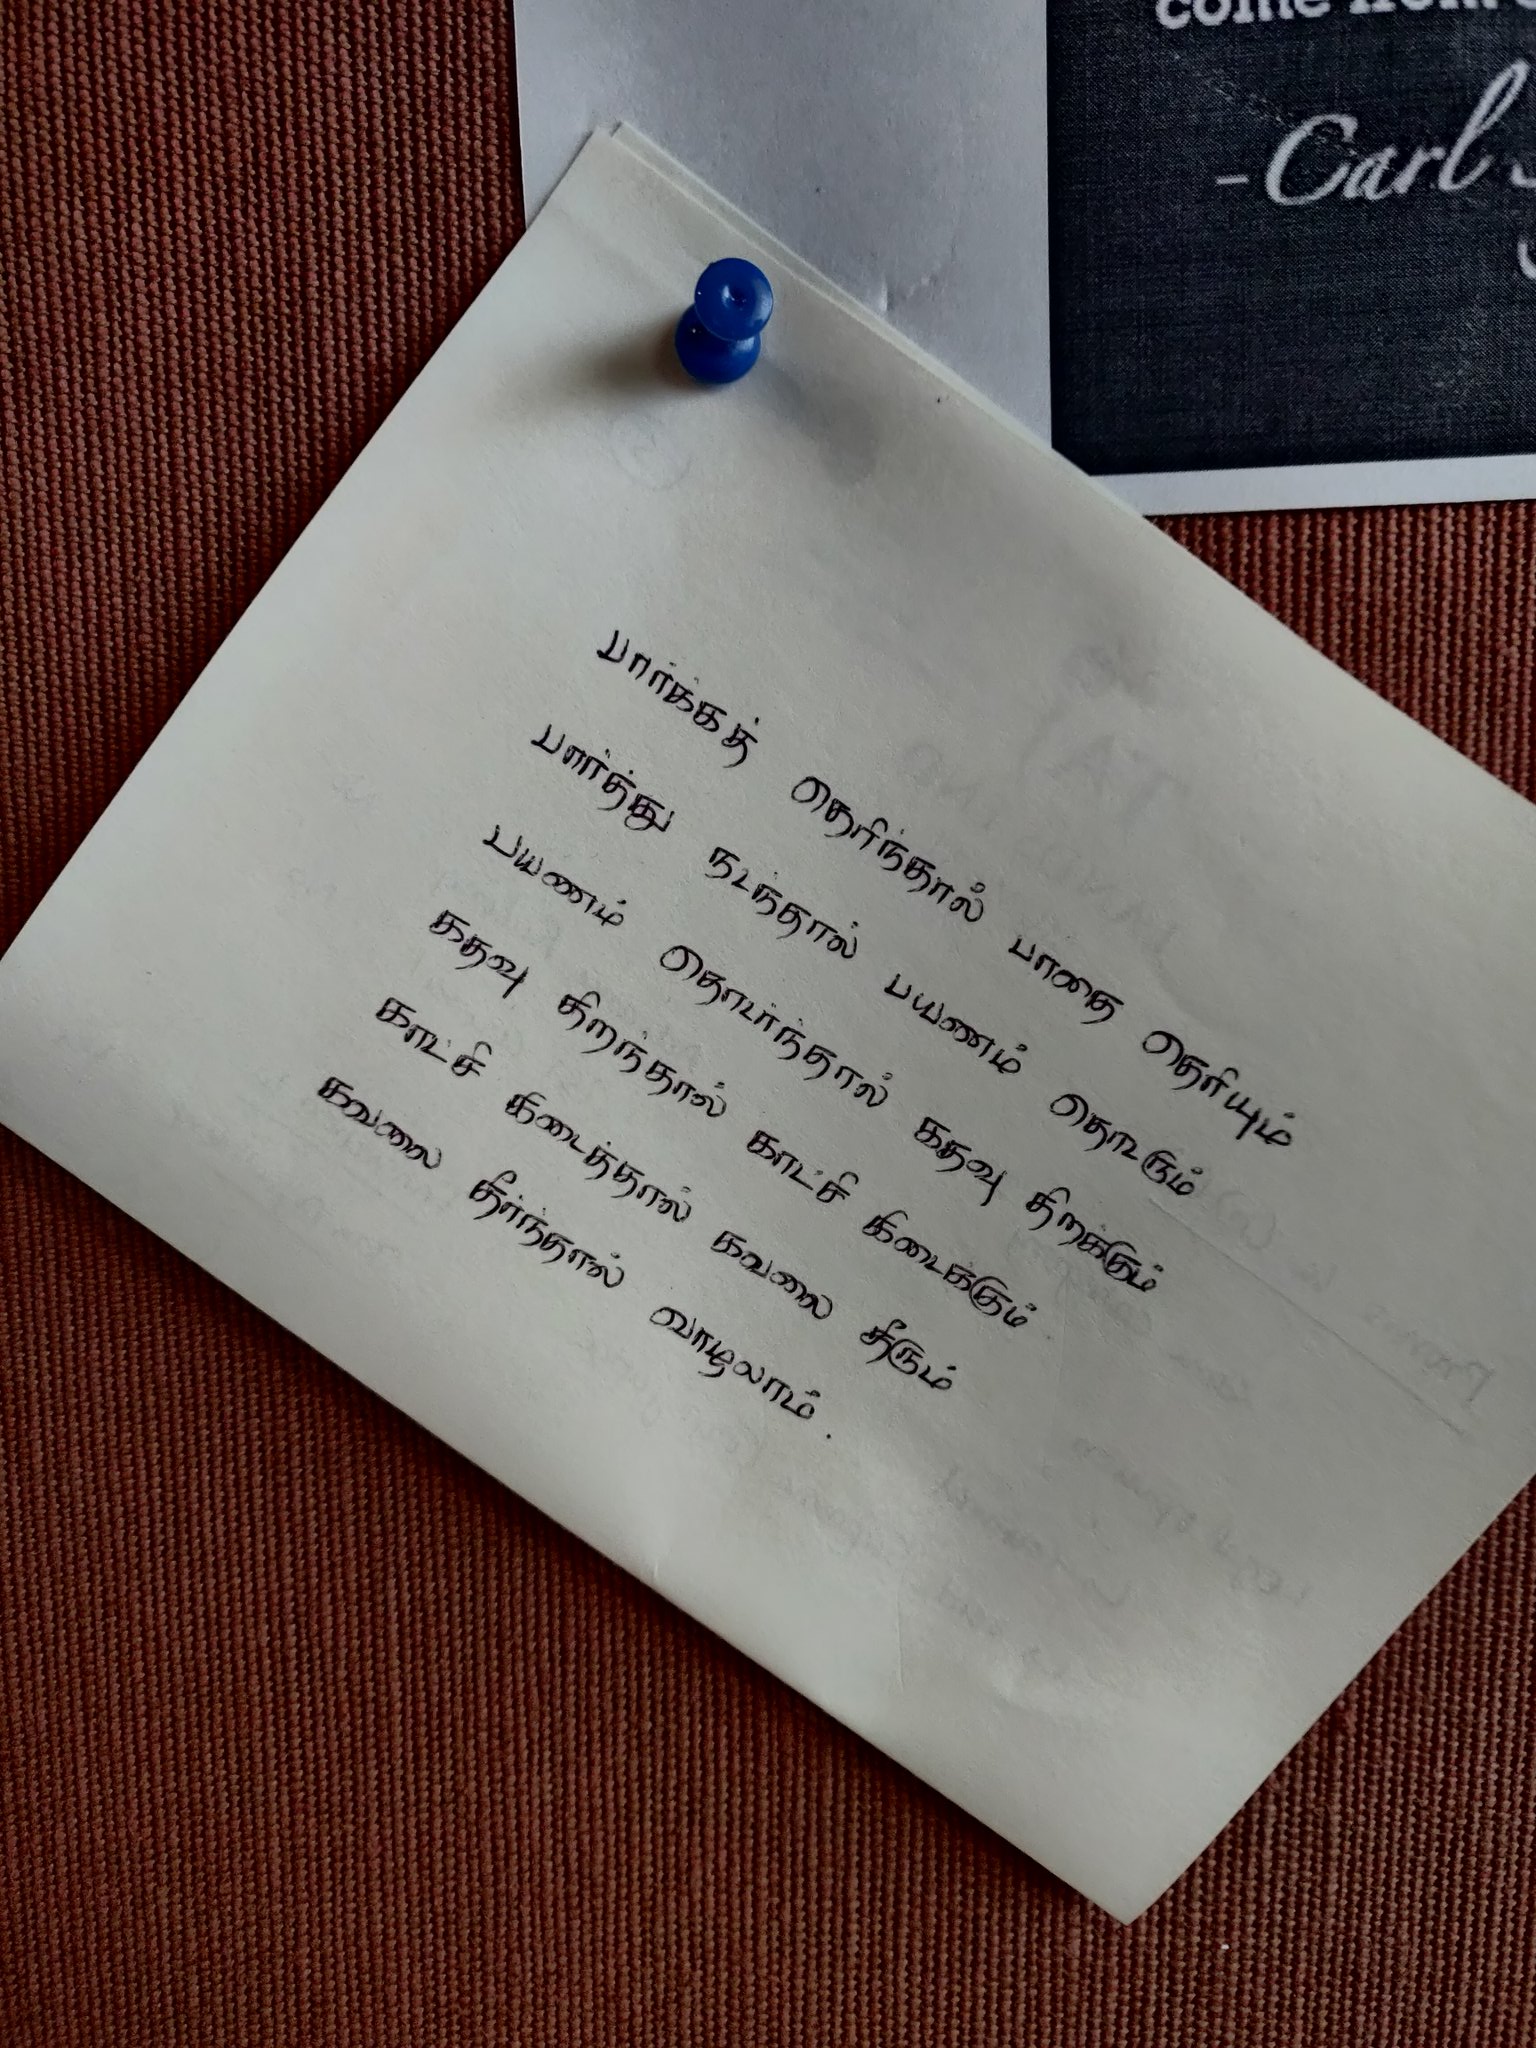 come from
-Carl
பார்க்கத் தெரிந்தால் பாதை தெரியும்
பார்த்து நடந்தால் பயணம் தொடரும்
பயணம் தொடர்ந்தால் கதவு திறக்கும்
கதவு திறந்தால் காட்சி கிடைக்கும்
காட்சி கிடைத்தால் கவலை தீரும்
கவலை தீர்ந்தால் வாழலாம்.